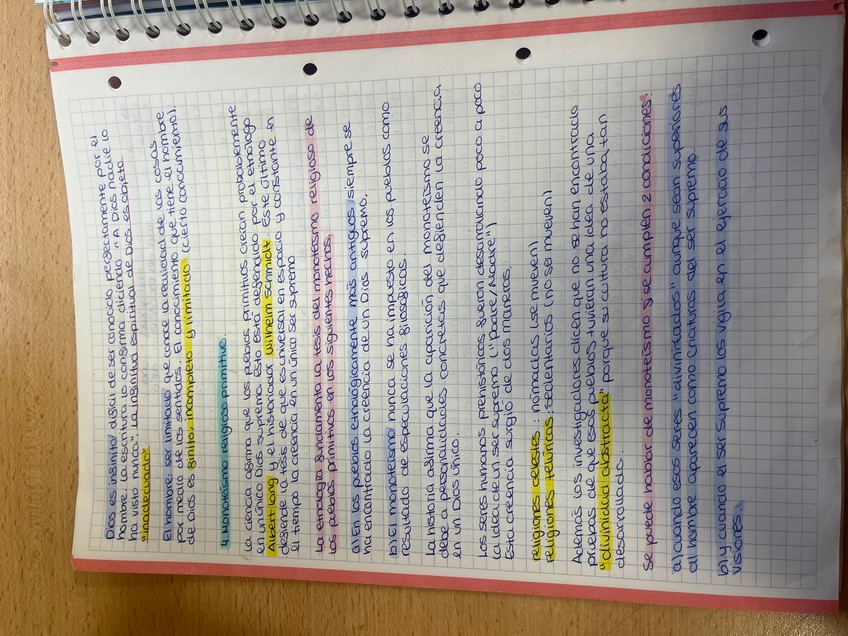 Dios es infinito, difícil de ser conocido perfectamente por el
hombre. La escritura lo confirma diciendo "A Dios nadie lo
ha visto nunca". La infinitud espiritual de Dios es objeto
"inadecuado"
El hombre: ser limitado que conoce la realidad de las cosas
por medio de los sentidos. El conocimiento que tiene el hombre
de Dios es finito, incompleto y limitado (cierto conocimiento).
4. Monoteísmo religioso primitivo.
La ciencia afirma que los pueblos primitivos creían probablemente
en un único Dios supremo. Esto está defendido por el etnólogo
Albert Lang y el historiador Wilhelm Schmidt. Este último
defiende la tesis de que es universal en espacio y constante en
el tiempo la creencia en un único ser supremo
La etnología fundamenta la tesis del monoteísmo religioso de
los pueblos primitivos en los siguientes hechos.
a) En los pueblos etnológicamente más antiguos, siempre se
ha encontrado la creencia de un Dios supremo.
b) El monoteísmo nunca se ha impuesto en los pueblos como
resultado de especulaciones filosóficas.
La historia afirma que la aparición del monoteísmo se
debe a personalidades concretas que defienden la creencia
en un Dios único.
Los seres humanos prehistóricos fueron desarrollando poco a poco
la idea de un ser supremo ("Padre/Madre")
Esta creencia surgió de dos maneras.
religiones celestes: nómadas (se mueven)
religiones telúricas: sedentarios (no se mueven)
Además los investigadores dicen que no se han encontrado
pruebas de que esos pueblos tuvieran una idea de una
"divinidad abstracta" porque su cultura no estaba tan
desarrollada.
Se puede hablar de monoteísmo si se cumplen 2 condiciones:
a) cuando esos seres "divinizados" aunque sean superiores
al hombre aparecen como criaturas del ser supremo.
b) y cuando el ser supremo los vigila en el ejercicio de sus
visiones.